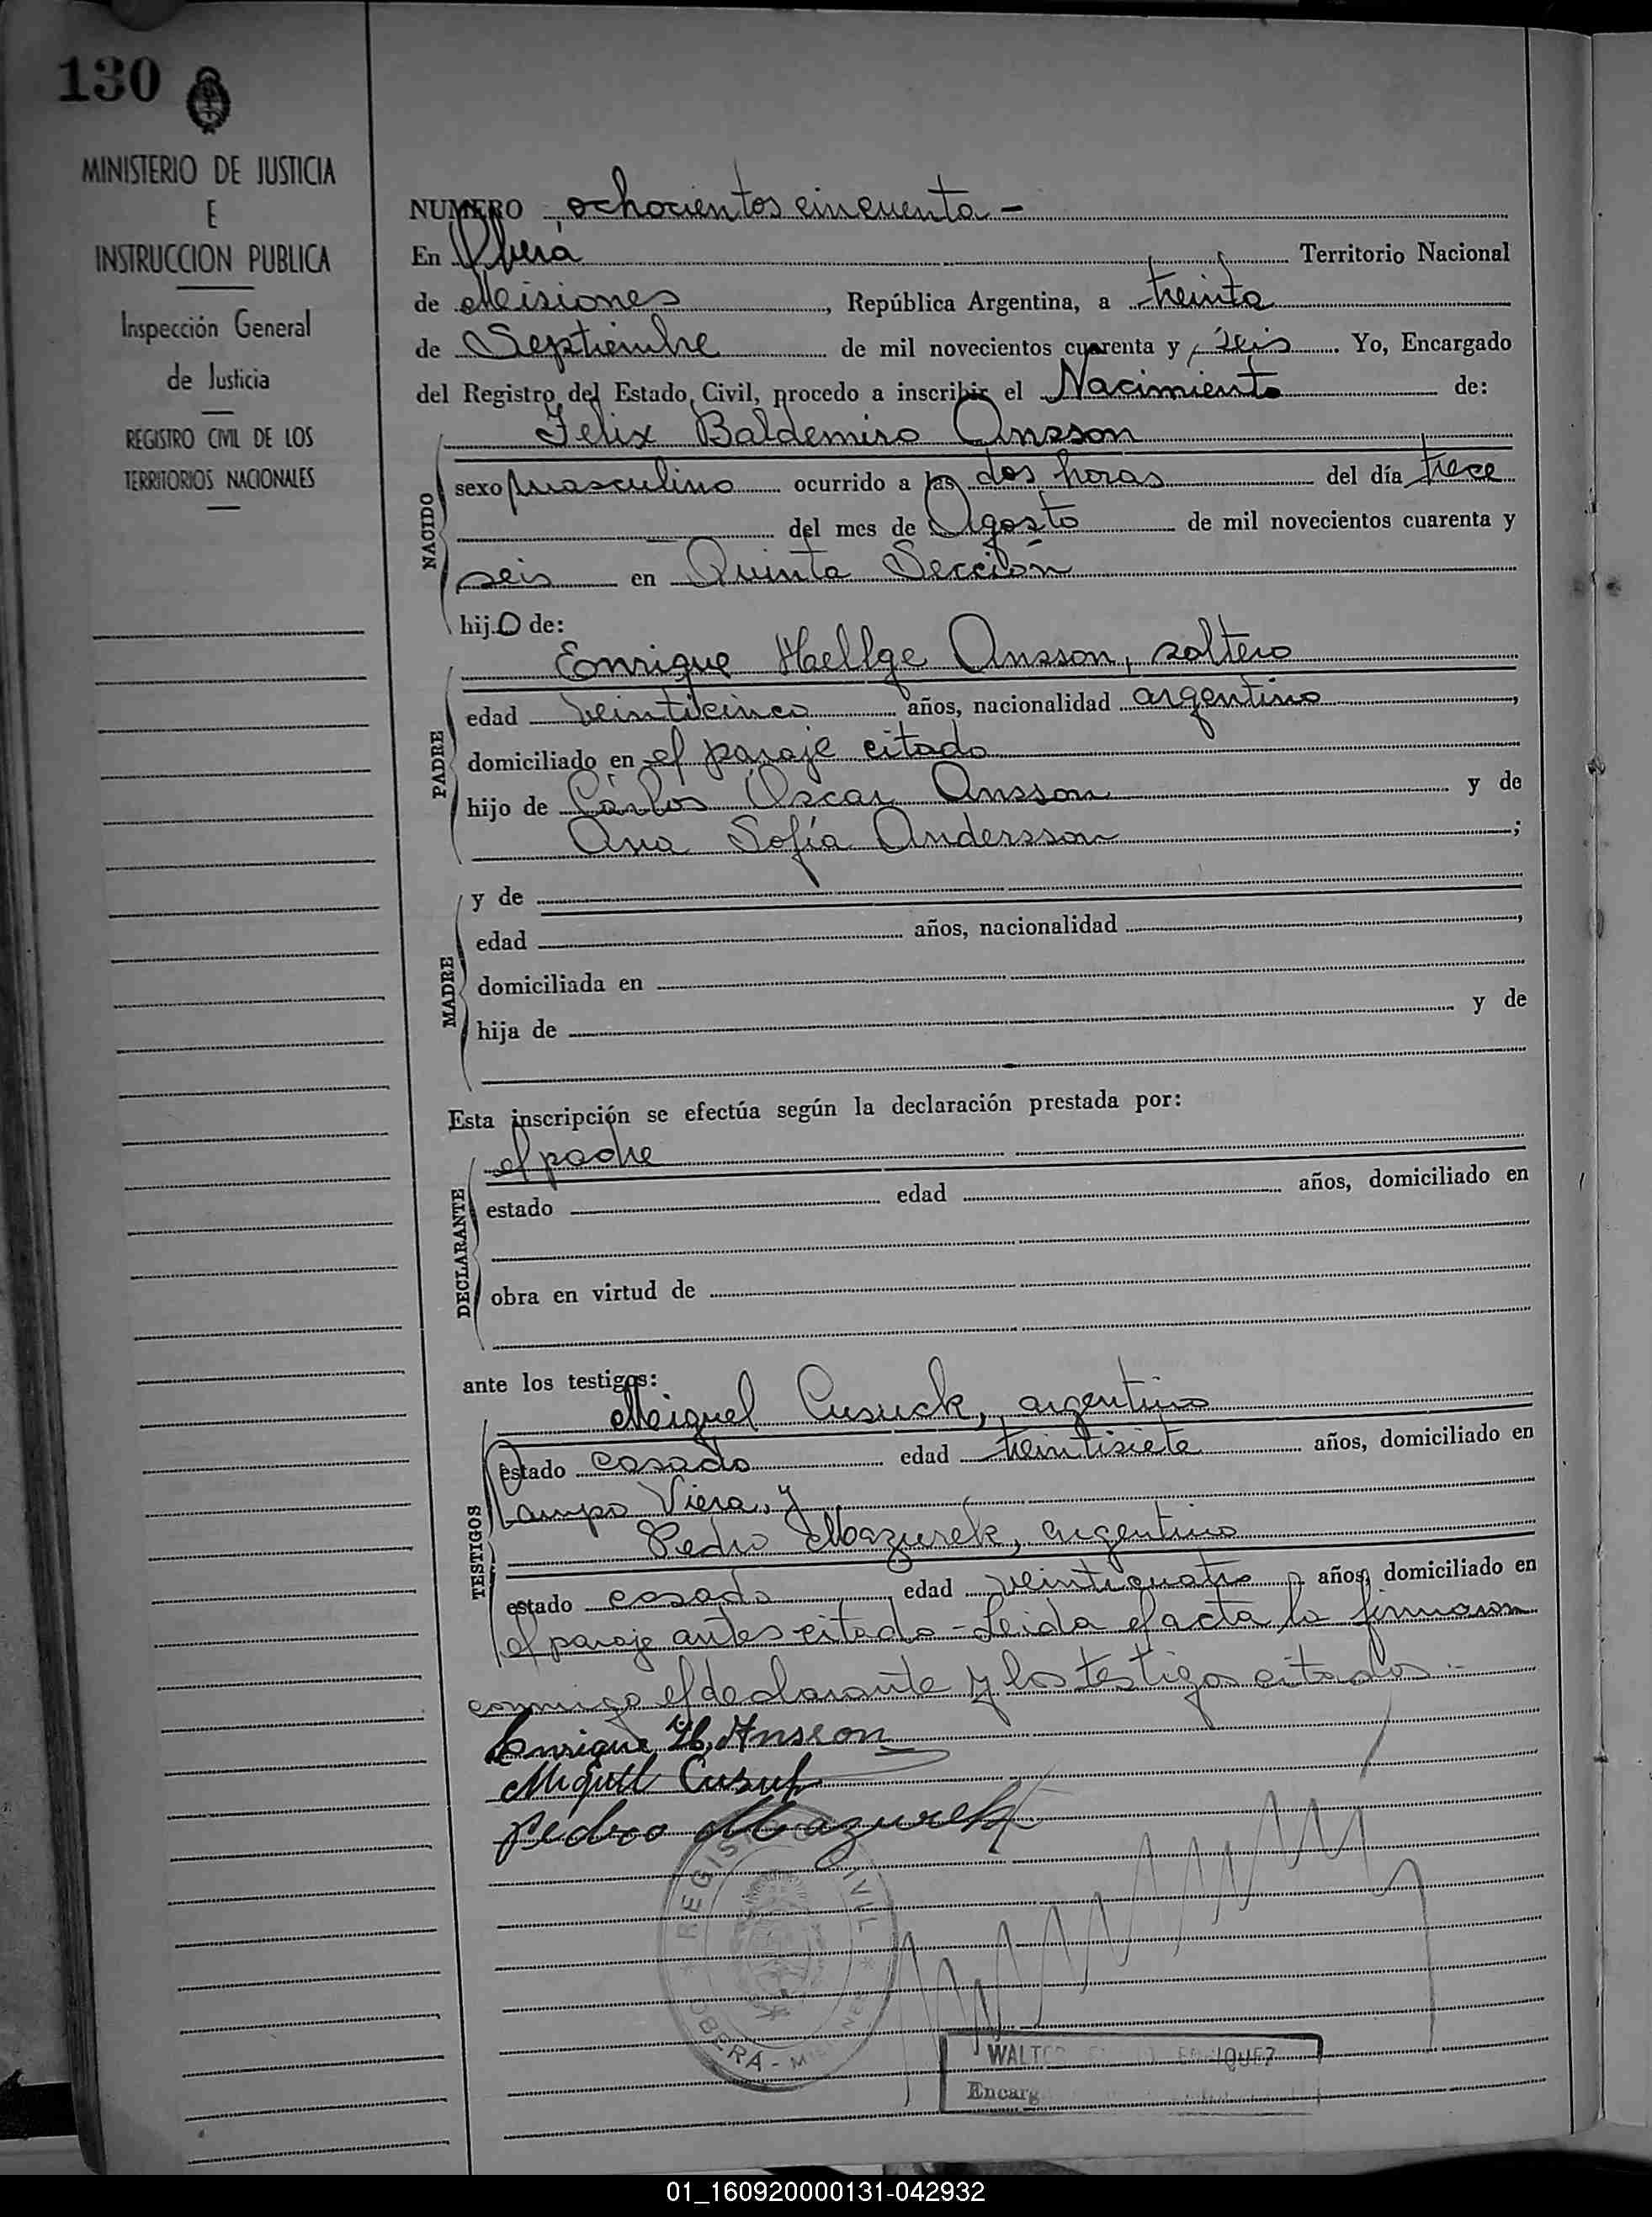 130
MINISTERIO DE JUSTICIA
E
INSTRUCCION PUBLICA
Inspección General
de Justicia
REGISTRO CIVIL DE LOS
TERRITORIOS NACIONALES
NUMERO ochocientos cincuenta -
En Oberá Territorio Nacional
de Misiones, República Argentina, a treinta
de Septiembre de mil novecientos cuarenta y seis Yo, Encargado
del Registro del Estado Civil, procedo a inscribir el Nacimiento de:
Felix Baldemiro Ansson
NACIDO
sexo masculino ocurrido a las dos horas del día trece
del mes de Agosto de mil novecientos cuarenta y
seis en Quinta Sección
hijo de:
PADRE
Enrique Hellge Ansson, soltero
edad veinticinco años, nacionalidad argentino,
domiciliado en el paraje citado
hijo de Carlos Oscar Ansson y de
Ana Sofía Andersson;
MADRE
y de
edad años, nacionalidad,
domiciliada en
hija de y de
Esta inscripción se efectúa según la declaración prestada por:
DECLARANTE
el padre
estado edad años, domiciliado en
obra en virtud de
ante los testigos:
TESTIGOS
Miguel Cusuck, argentino
estado casado edad treintisiete años, domiciliado en
Campo Viera, y
Pedro Mazurek, argentino
estado casado edad veinticuatro años, domiciliado en
el paraje antes citado - Leida el acta la firmaron
conmigo el declarante y los testigos citados.-
Enrique H. Ansson
Miguel
Pedro Mazurek
REGISTRO CIVIL
OBERA - MISIONES
WALTER
Encarg
01_160920000131-042932